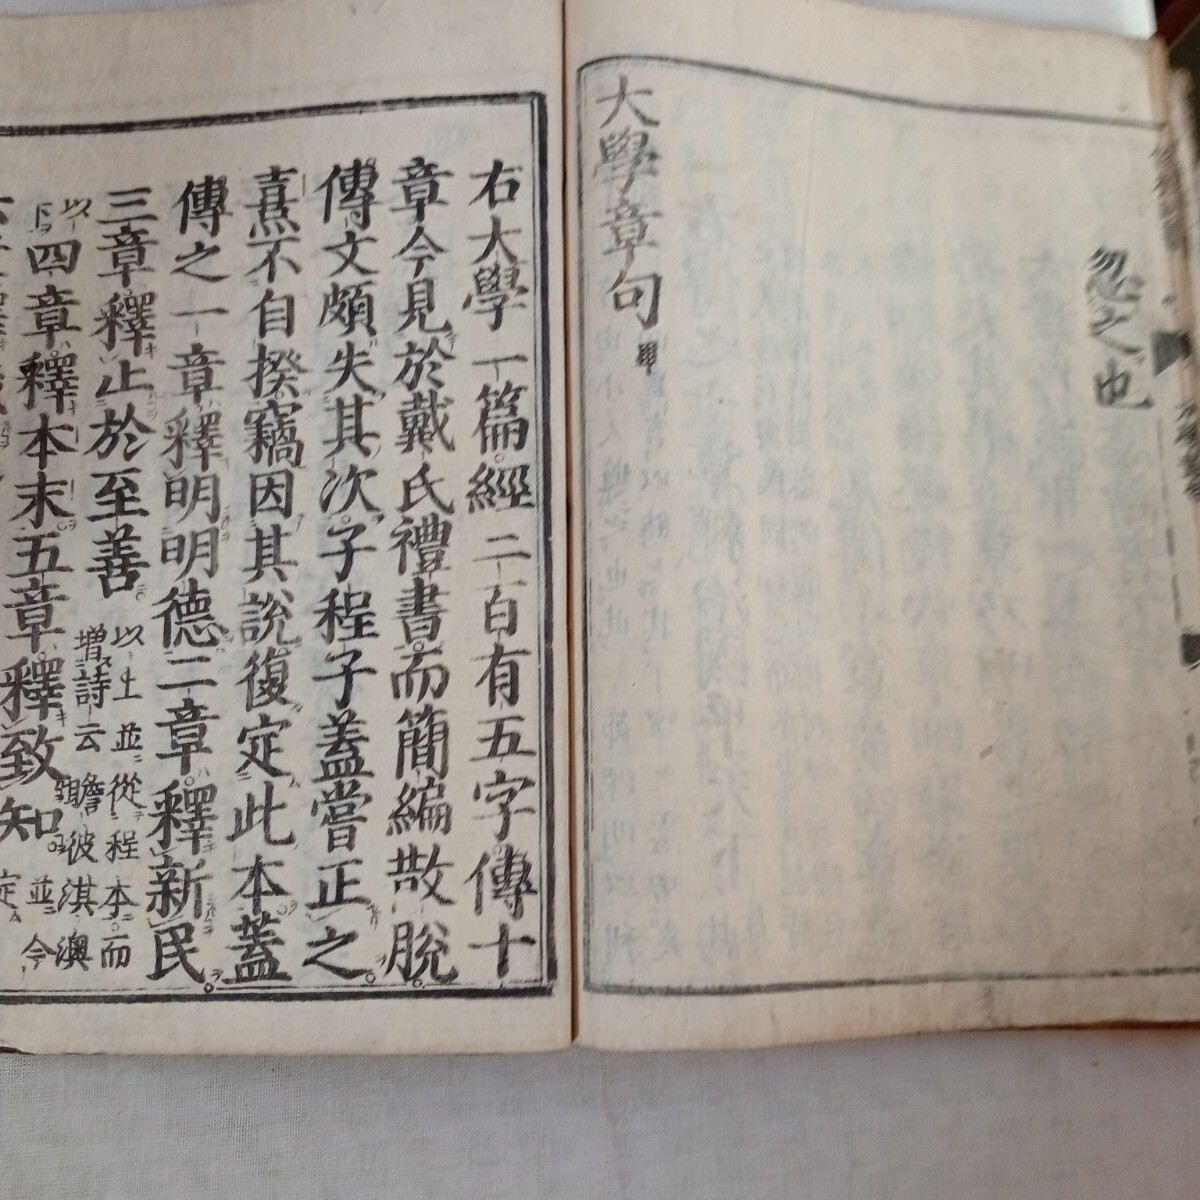 忽之也
大學章句畢
右大學一篇經二百有五字傳十
章今見於戴氏禮書而簡編散脫
傳文頗失其次子程子蓋嘗正之
熹不自揆竊因其說復定此本蓋
傳之一章釋明明德二章釋新民
三章釋止於至善以上並從程本而增詩云瞻彼淇澳
以下四章釋本末五章釋致知並今定